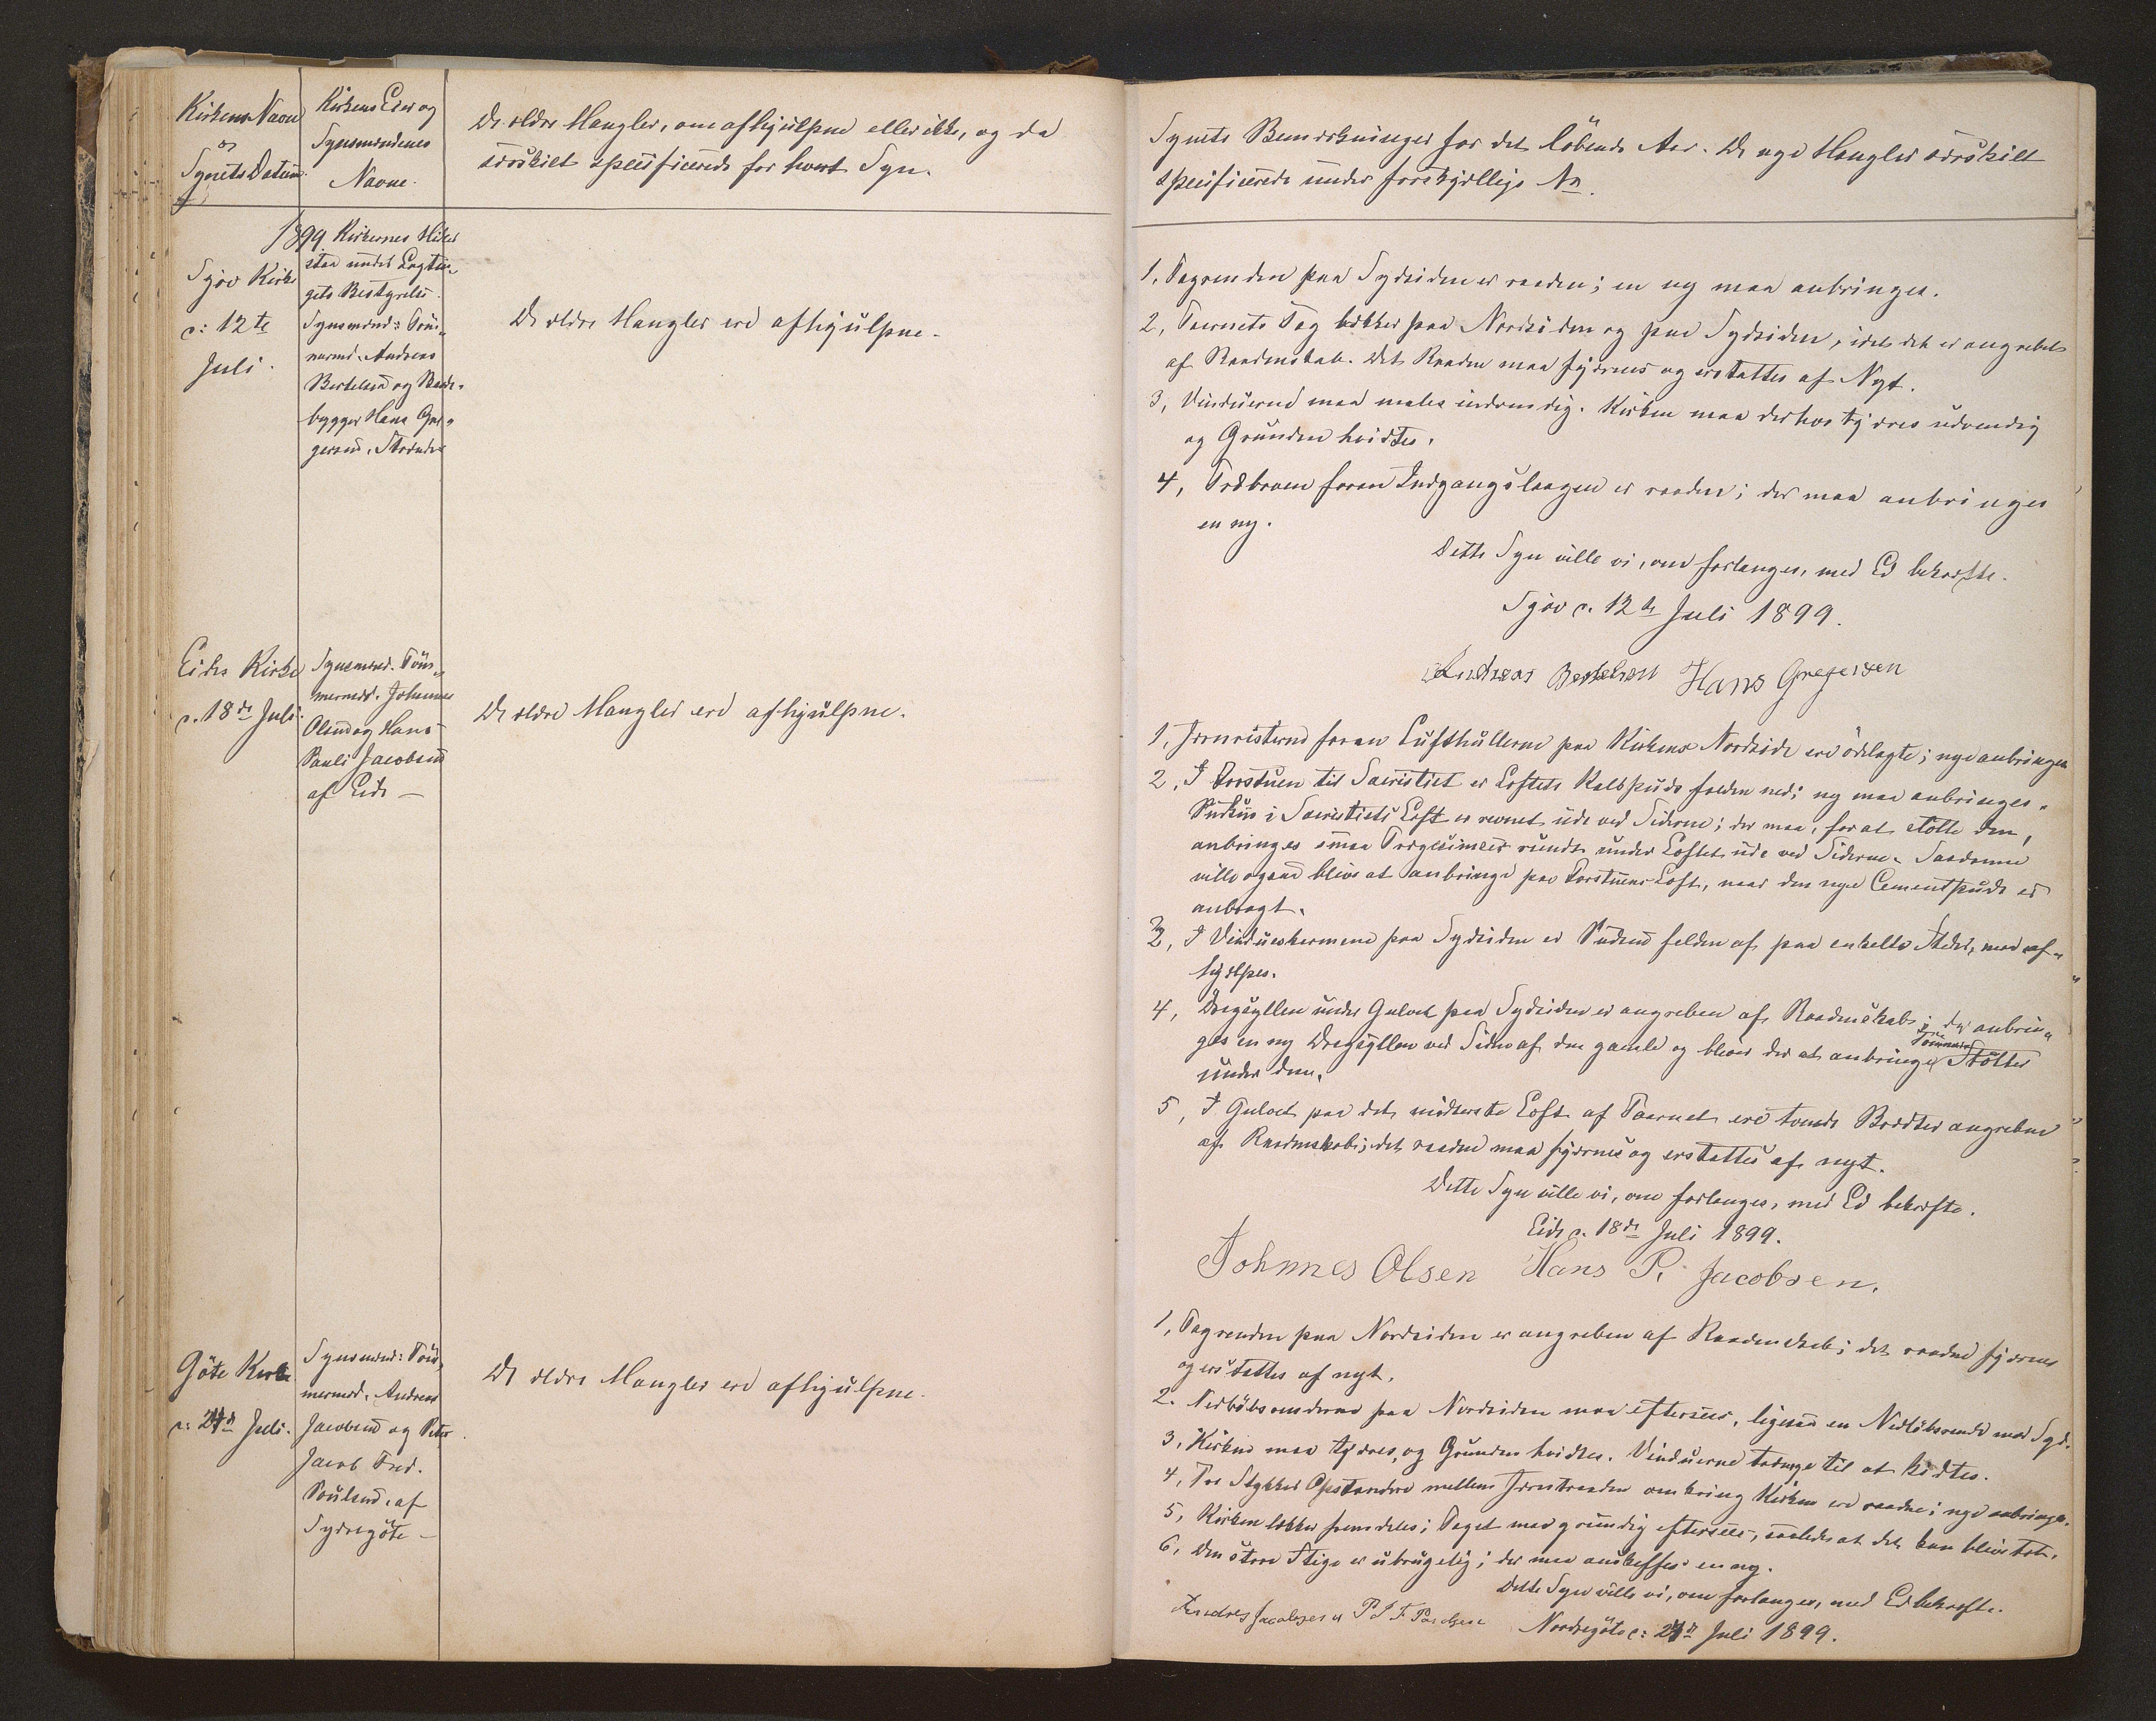 Kirkens Navn
og
Synets Datum
Kirkens Eier og
Synsmændenes
Navne.
De ældre Mangler, om afhjulpne eller ikke, og da
særskilt specificerede for hvert Syn.
1899
Sjov Kirke
d: 12te
Juli.
Kirkernes Midler
staa under Lagtin„
gets Bestyrelse.
Synsmænd: Töm„
mermd. Andreas
Bertelsen og Baade„
bygger Hans Gre„
gersen,
De ældre Mangler ere afhjulpne.
Eides Kirke
d. 18de Juli.
Synsmænd. Töm„
mermd. Johannes
Olsen og Hans
Pauli Jacobsen
af Eide —
De ældre Mangler ere afhjulpne.
Göte Kirke
d: Juli.
Synsmænd: Töm„
mermd. Andreas
Jacobsen og Peter
Jacob Fred.
Poulsen, af
Sydregöte —
De ældre Mangler ere afhjulpne.
Synets Bemærkninger for det löbende Aar. De nye Mangler særskilt
specificerede under forskjellige No.
1, Tagrenden paa Sydsiden er raaden; en ny maa anbringes.
2, Taarnets Tag lækker paa Nordsiden og paa Sydsiden, idet det er angrebet
af Raadenskab. Det Raadne maa fjernes og erstattes af Nyt.
3, Vinduerne maa males indvendig. Kirken maa derhos tjæres udvendig
og Grunden hvidtes.
4, Træbroen foran Indgangslaagen er raaden; der maa anbringes
en ny.
Dette Syn ville vi, om forlanges, med Ed bekræfte.
Sjov d. 12te Juli 1899.
Andreas Bertelsen Hans Gregersen
1, Jernristerne foran Lufthullerne paa Kirkens Nordside ere ödelagte; nye anbringes
2, I Forstuen til Sacristiet er Loftets Kalkpuds falden ned; ny maa anbringes.
Pudsen i Sacristiets Loft er revnet ude ved Siderne; der maa, for at stötte den,
anbringes smaa Trægesimser rundt under Loftet ude ved Siderne. Saadanne
ville ogsaa blive at anbringe paa Forstuens Loft, naar den nye Cementpuds er
anbragt.
3, I Vindueskarmene paa Sydsiden er Pudsen falden af paa enkelte Steder, maa af„
hjælpes.
4, Dragsyllen under Gulvet paa Sydsiden er angreben af Raadenskab; der anbrin„
ges en ny Dragsylle ved Siden af den gamle og bliver der at anbringe Stötter
under den.
5, I Gulvet paa det midterste Loft af Taarnet ere tvende Brædder angrebne
af Raadenskab; det raadne maa fjernes og erstattes af nyt.
Dette Syn ville vi, om forlanges, med Ed bekræfte.
Eide d. 18de Juli 1899.
Johnnes Olsen Hans P. Jacobsen.
1, Tagrenden paa Nordsiden er angreben af Raadenskab; det raadne fjernes
og erstattes af nyt.
2. Nedlöbsrenderne paa Nordsiden maa efterses, ligesaa en Nedlöbsrende mod Syd.
3, Kirken maa tjæres, og Grunden hvidtes. Vinduerne trænge til at kidtes.
4, Tre Stykker Opstandere mellem Jerntraaden omkring Kirken ere raadne; nye anbringes.
5, Kirken lækker fremdeles; Taget maa grundig efterses, saaledes at det kan blive tæt.
6, Den store Stige er ubrugelig; der maa anskaffes en ny.
Dette Syn ville vi, om forlanges, med Ed bekræfte.
Andreas Jacobsen P J F Poulsen
Nordregöte d: Juli 1899.